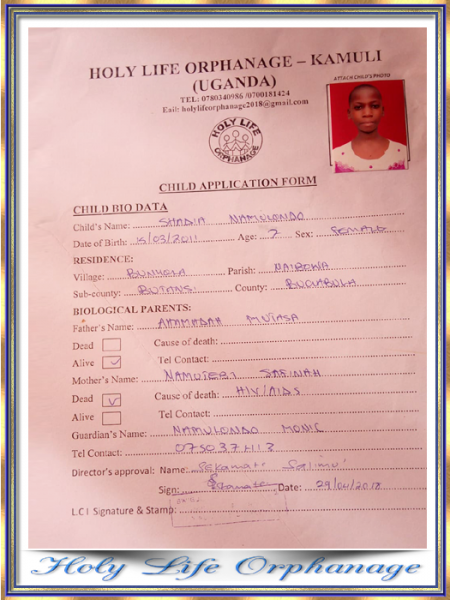 HOLY LIFE ORPHANAGE – KAMULI
(UGANDA)
TEL: 0780340986 /0700181424
Eail: holylifeorphanage2018@gmail.com
ATTACH CHILD'S PHOTO
HOLY LIFE
ORPHANAGE
CHILD APPLICATION FORM
CHILD BIO DATA
Child's Name: SHADIA NAMULONDO
Date of Birth: 15/03/2011 Age: 7 Sex: FEMALE
RESIDENCE:
Village: Parish: NAIBOWA
Sub-county: BUTANSI County: BUGABULA
BIOLOGICAL PARENTS:
Father's Name: MUTASA
Dead Cause of death:
Alive Tel Contact:
Mother's Name: SABINAH
Dead Cause of death: HIV/AIDS
Alive Tel Contact:
Guardian's Name: NAMULONDO MONIC
Tel Contact:
Director's approval: Name:
Sign: Date: 29/04/2018
L.C I Signature & Stamp:
Holy Life Orphanage